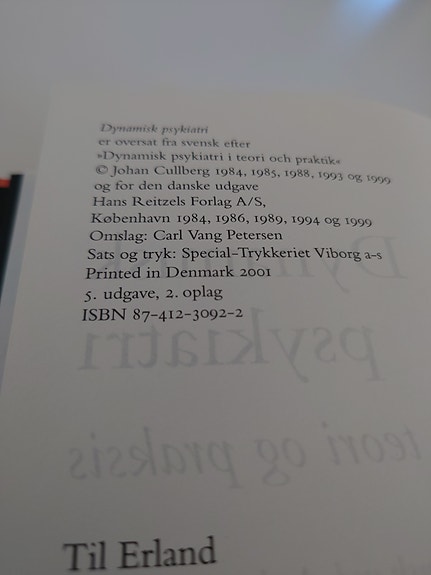 Dynamisk psykiatri
er oversat fra svensk efter
»Dynamisk psykiatri i teori och praktik«
© Johan Cullberg 1984, 1985, 1988, 1993 og 1999
og for den danske udgave
Hans Reitzels Forlag A/S,
København 1984, 1986, 1989, 1994 og 1999
Omslag: Carl Vang Petersen
Sats og tryk: Special-Trykkeriet Viborg a-s
Printed in Denmark 2001
5. udgave, 2. oplag
ISBN 87-412-3092-2
psykiatri
teori og praksis
Til Erland